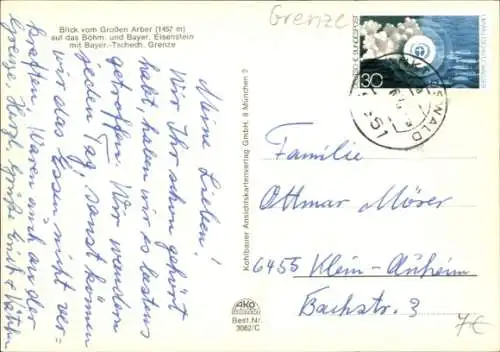 Blick vom Großen Arber (1457 m)
auf das Böhm. und Bayer. Eisenstein
mit Bayer.-Tschech. Grenze
Grenze
Meine Lieben!
Wir Ihr schon gehört
habt, haben wir es bestens
getroffen. Wir wandern
jeden Tag, sonst können
wir das Essen nicht ver=
kraften. Waren auch an der
Grenze. Herzl. Grüße
Kohlbauer Ansichtskartenverlag GmbH, 8 München 2
AKO
Best.Nr.
3062/C
DEUTSCHE BUNDESPOST
30
WALD
Familie
Ottmar Möser
6455 Klein-Auheim
Bachstr. 3
7€